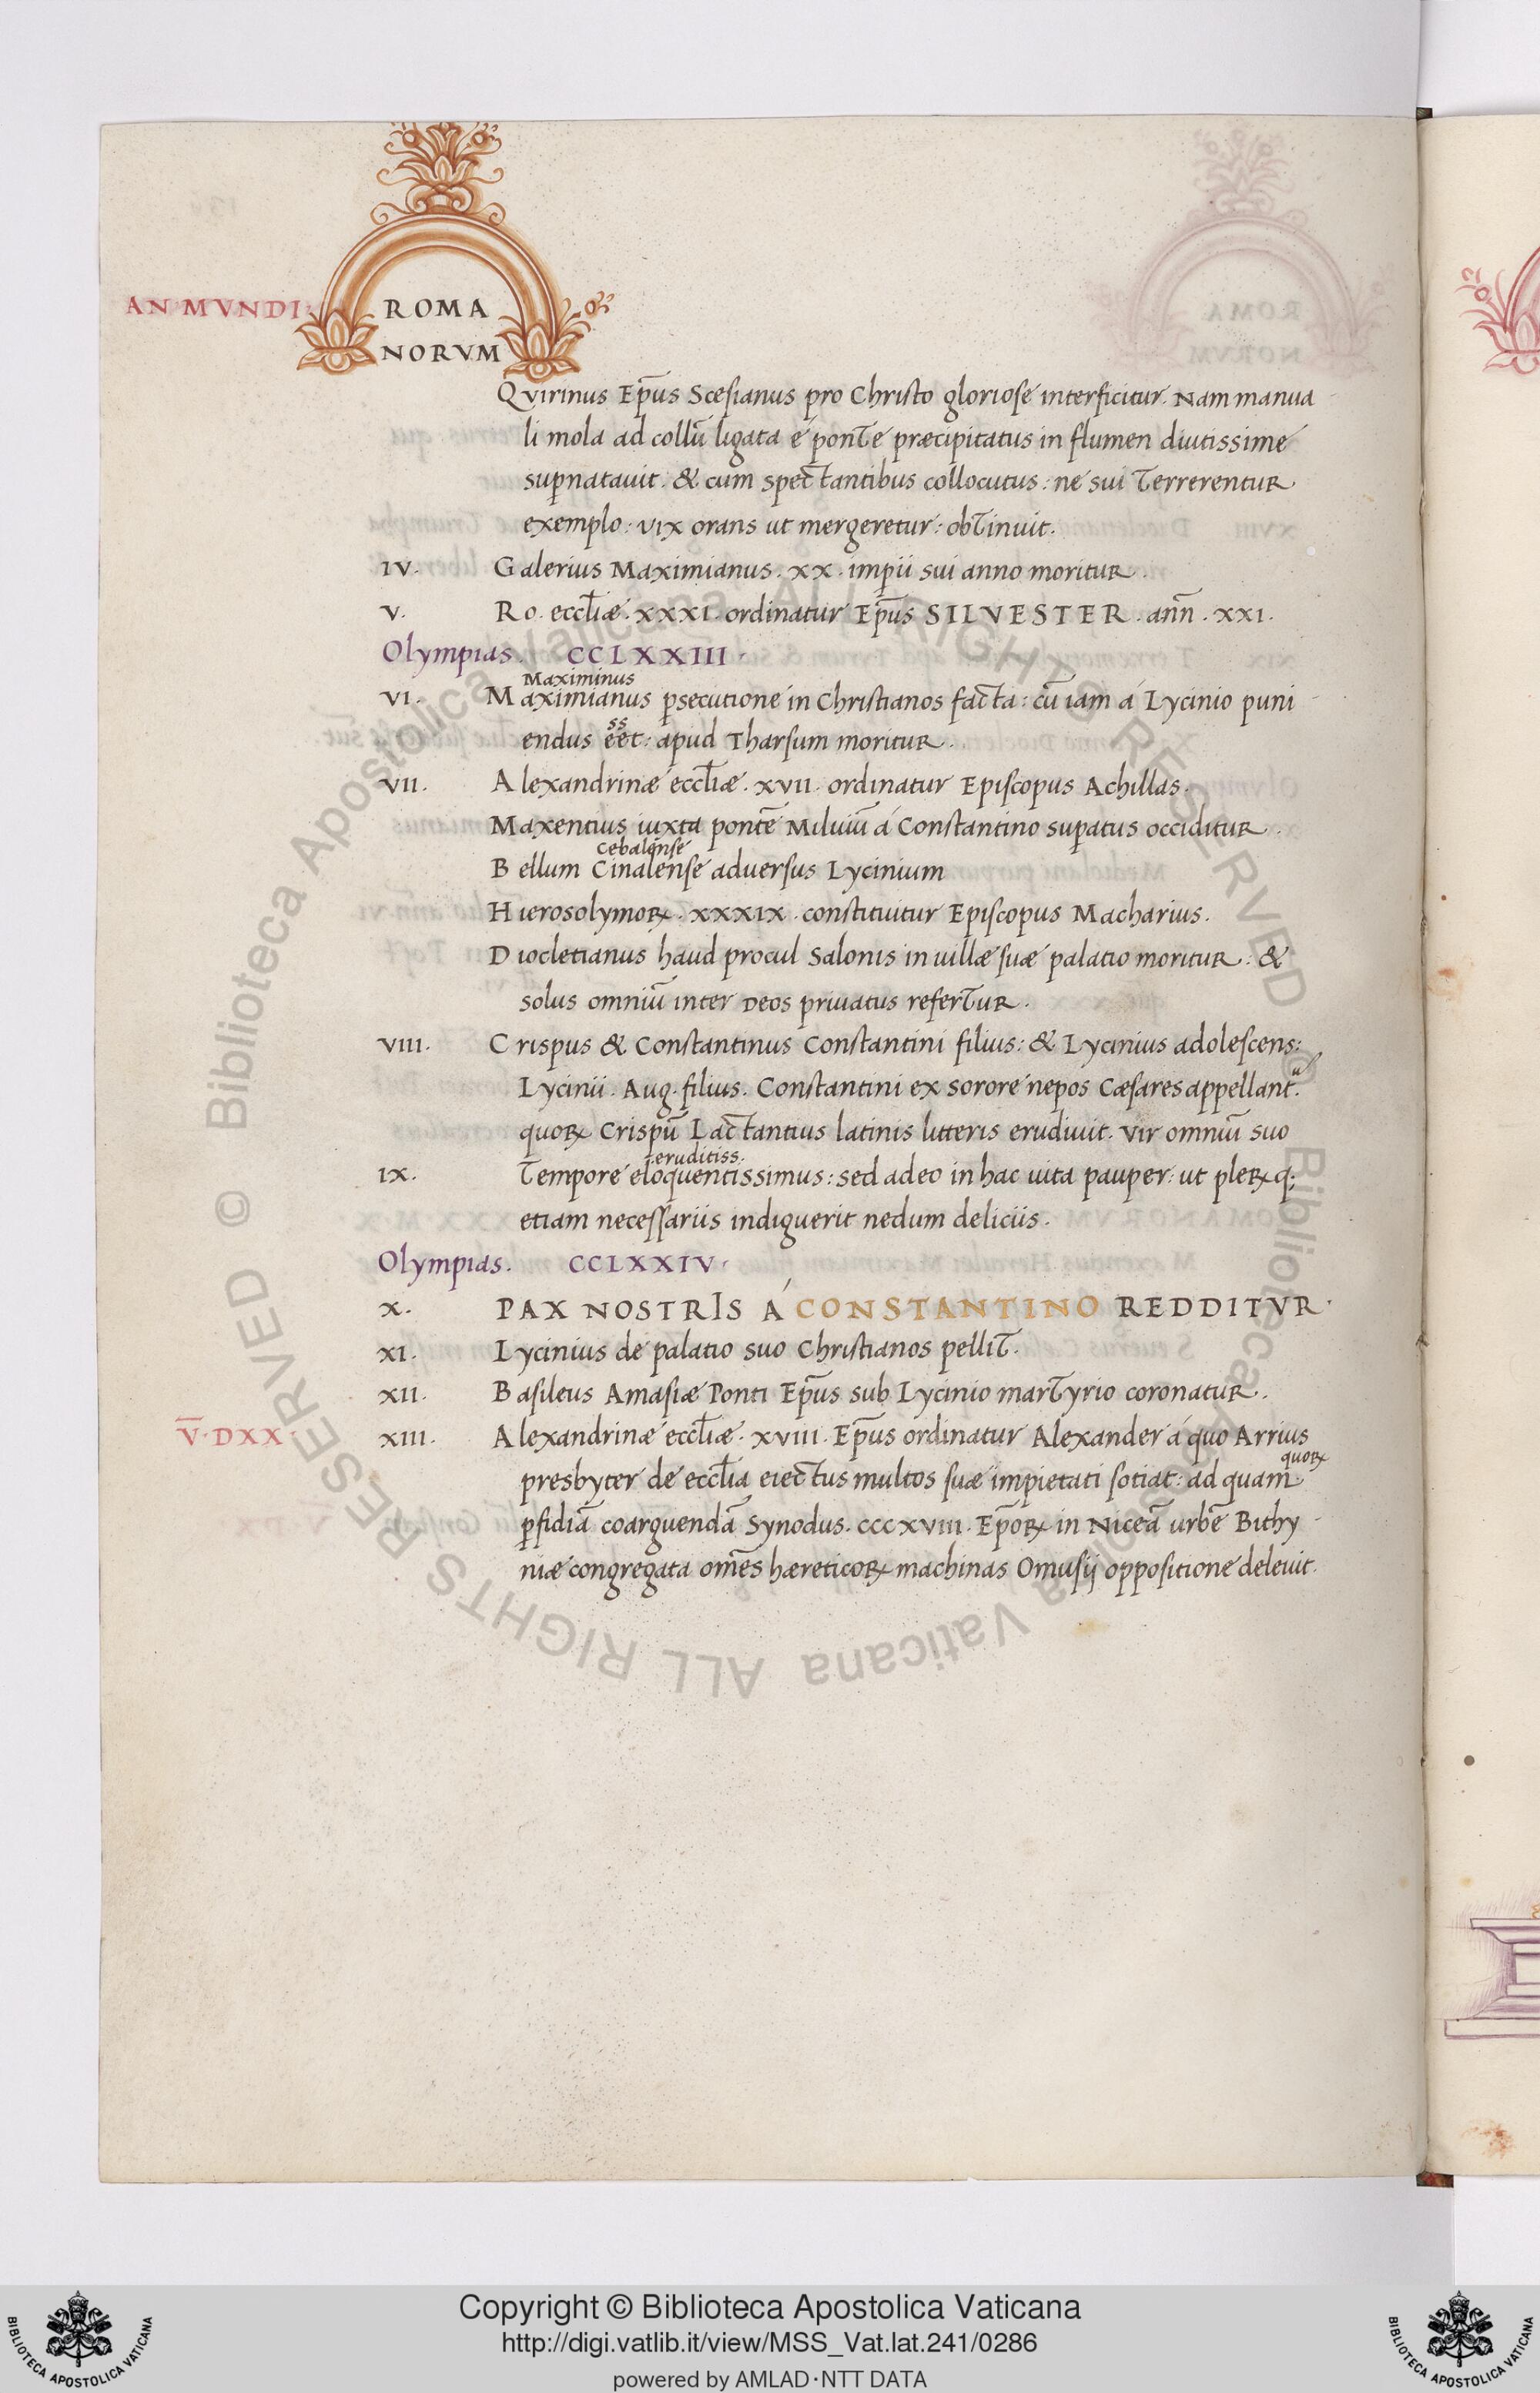 AN MVNDI·
ROMA
NORVM
Qvirinus Ep̄us Scesianus pro Christo gloriose interficitur. Nam manua
li mola ad collū ligata é ponte præcipitatus in flumen diutissime
suꝑnatauit. & cum spectantibus collocutus: ne sui terrerentur
exemplo: vix orans ut mergeretur: obtinuit.
IV. Galerius Maximianus. XX. imꝑii sui anno moritur.
V. Ro. eccl̄iæ. XXXI. ordinatur Ep̄us SILVESTER. ann̄. XXI.
Olympias. CCLXXIII.
Maximinus
VI. Maximianus ꝑsecutione in Christianos facta: cū iam á Lycinio puni
ss
endus eēt: apud Tharsum moritur.
VII. Alexandrinæ eccl̄iæ. XVII. ordinatur Episcopus Achillas.
Maxentius iuxta pontē Miluiū á Constantino suꝑatus occiditur.
Cebalense
Bellum Cinalense aduersus Lycinium
Hierosolymoꝝ. XXXIX. constituitur Episcopus Macharius.
Diocletianus haud procul Salonis in uillæ suæ palatio moritur: &
solus omniū inter Deos priuatus refertur.
VIII. Crispus & Constantinus Constantini filius: & Lycinius adolescens:
Lycinii. Aug. filius. Constantini ex sorore nepos Cæsares appellant.
quoꝝ Crispū Lactantius latinis litteris erudiuit. Vir omniū suo
eruditiss.
IX. tempore eloquentissimus: sed adeo in hac uita pauper: ut pleꝝq;
etiam necessariis indiguerit nedum deliciis.
Olympias. CCLXXIV.
X. PAX NOSTRIS Á CONSTANTINO REDDITVR.
XI. Lycinius de palatio suo Christianos pellit.
XII. Basileus Amasiæ Ponti Ep̄us sub Lycinio martyrio coronatur.
V̄·DXX· XIII. Alexandrinæ eccl̄iæ. XVIII. Ep̄us ordinatur Alexander á quo Arrius
quoꝝ
presbyter de eccl̄ia eiectus multos suæ impietati sotiat: ad quam.
ꝑfidiā coarguendā Synodus. CCCXVIII. Ep̄oꝝ in Niceā urbē Bithy
niæ congregata om̄es hæreticoꝝ machinas Omusij oppositione deleuit.
© Biblioteca Apostolica Vaticana ALL RIGHTS RESERVED
© Biblioteca Apostolica Vaticana ALL RIGHTS RESERVED
Copyright © Biblioteca Apostolica Vaticana
http://digi.vatlib.it/view/MSS_Vat.lat.241/0286
powered by AMLAD·NTT DATA
BIBLIOTECA APOSTOLICA VATICANA
BIBLIOTECA APOSTOLICA VATICANA